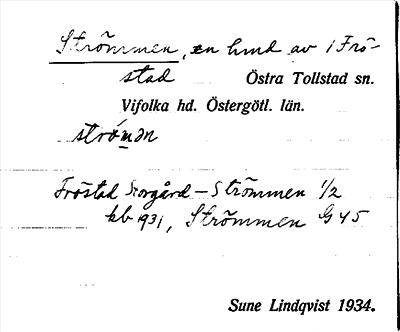 Strömmen, en hmd av 1 Frö-
stad Östra Tollstad sn.
Vifolka hd. Östergötl. län.
strómən
Fröstad Storgård – Strömmen 1/2
kb 1931, Strömmen G 45
Sune Lindqvist 1934.